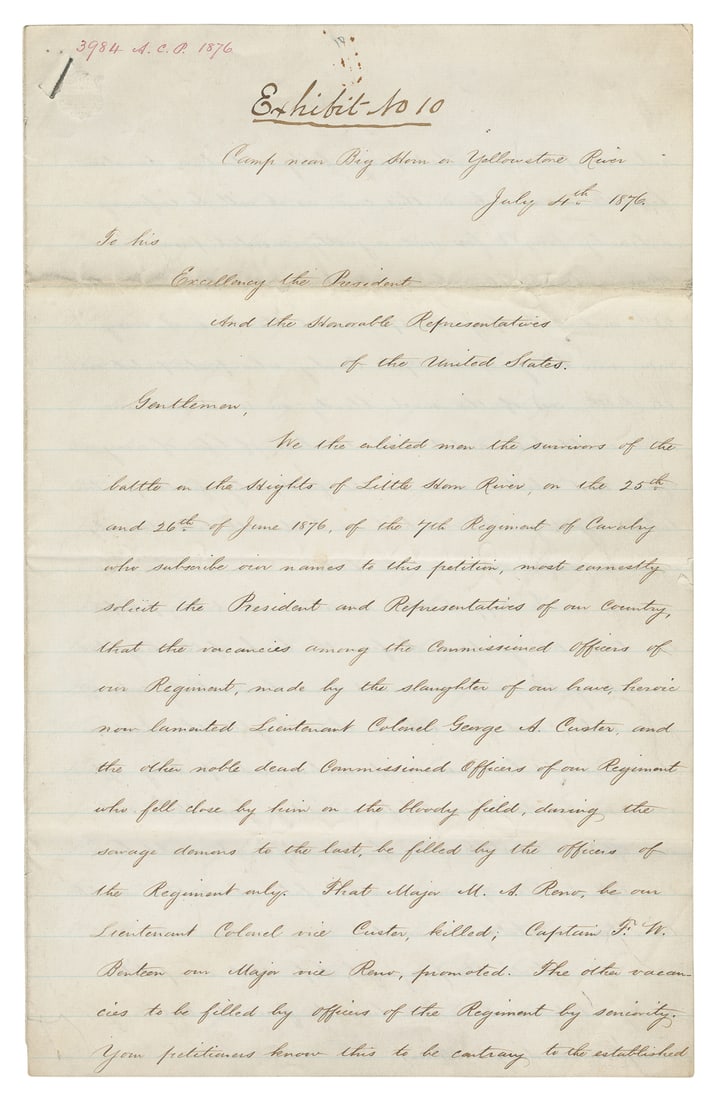 3984 A. C. P. 1876
Exhibit No 10
Camp near Big Horn on Yellowstone River
July 4th 1876.
To his
Excellency the President
And the Honorable Representatives
of the United States.
Gentlemen,
We the enlisted men the survivors of the
battle on the Hights of Little Horn River, on the 25th
and 26th of June 1876, of the 7th Regiment of Cavalry
who subscribe our names to this petition, most earnestly
solicit the President and Representatives of our Country,
that the vacancies among the Commissioned Officers of
our Regiment, made by the slaughter of our brave, heroic
now lamented Lieutenant Colonel George A. Custer, and
the other noble dead Commissioned Officers of our Regiment
who fell close by him on the bloody field, daring the
savage demons to the last, be filled by the Officers of
the Regiment only. That Major M. A. Reno, be our
Lieutenant Colonel vice Custer, killed; Captain F. W.
Benteen our Major vice Reno, promoted. The other vacan-
cies to be filled by officers of the Regiment by seniority.
Your petitioners know this to be contrary to the established